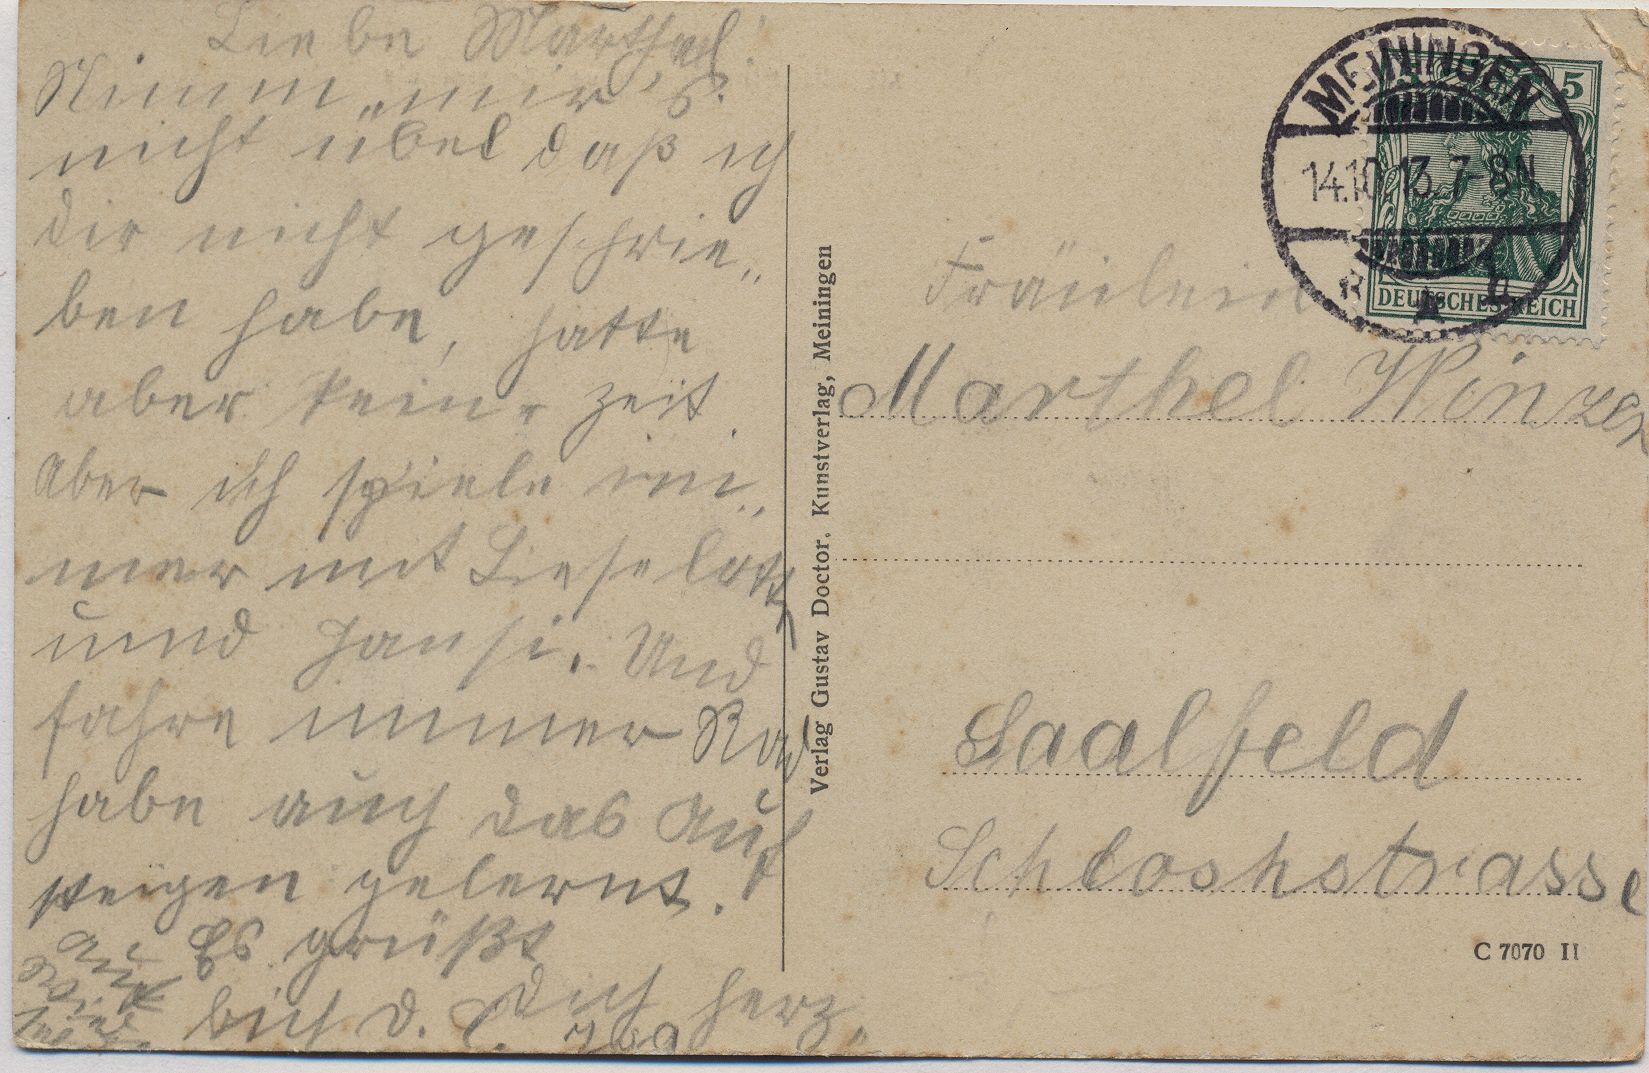 Liebe Marthel!
Nimm mir's
nicht übel daß ich
dir nicht geschrie„
ben habe, hatte
aber keine Zeit.
Aber ich spiele im„
mer mit Lieselott
und Hansi. Und
fahre immer Rad
habe auch das Auf
steigen gelernt.
Es grüßt
dich herz„
lich d. L.
Verlag Gustav Doctor, Kunstverlag, Meiningen
MEININGEN
14.10.13. 7-8N
5
DEUTSCHES REICH
Fräulein
Marthel Winzer
Saalfeld
Schloshstrasse
C 7070 II